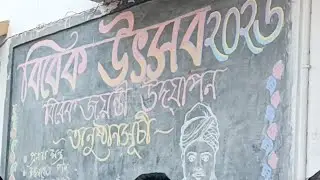 বিবেক উৎসব ২০২৬
বিবেক জয়ন্তী উদযাপন
অনুষ্ঠানসূচী~